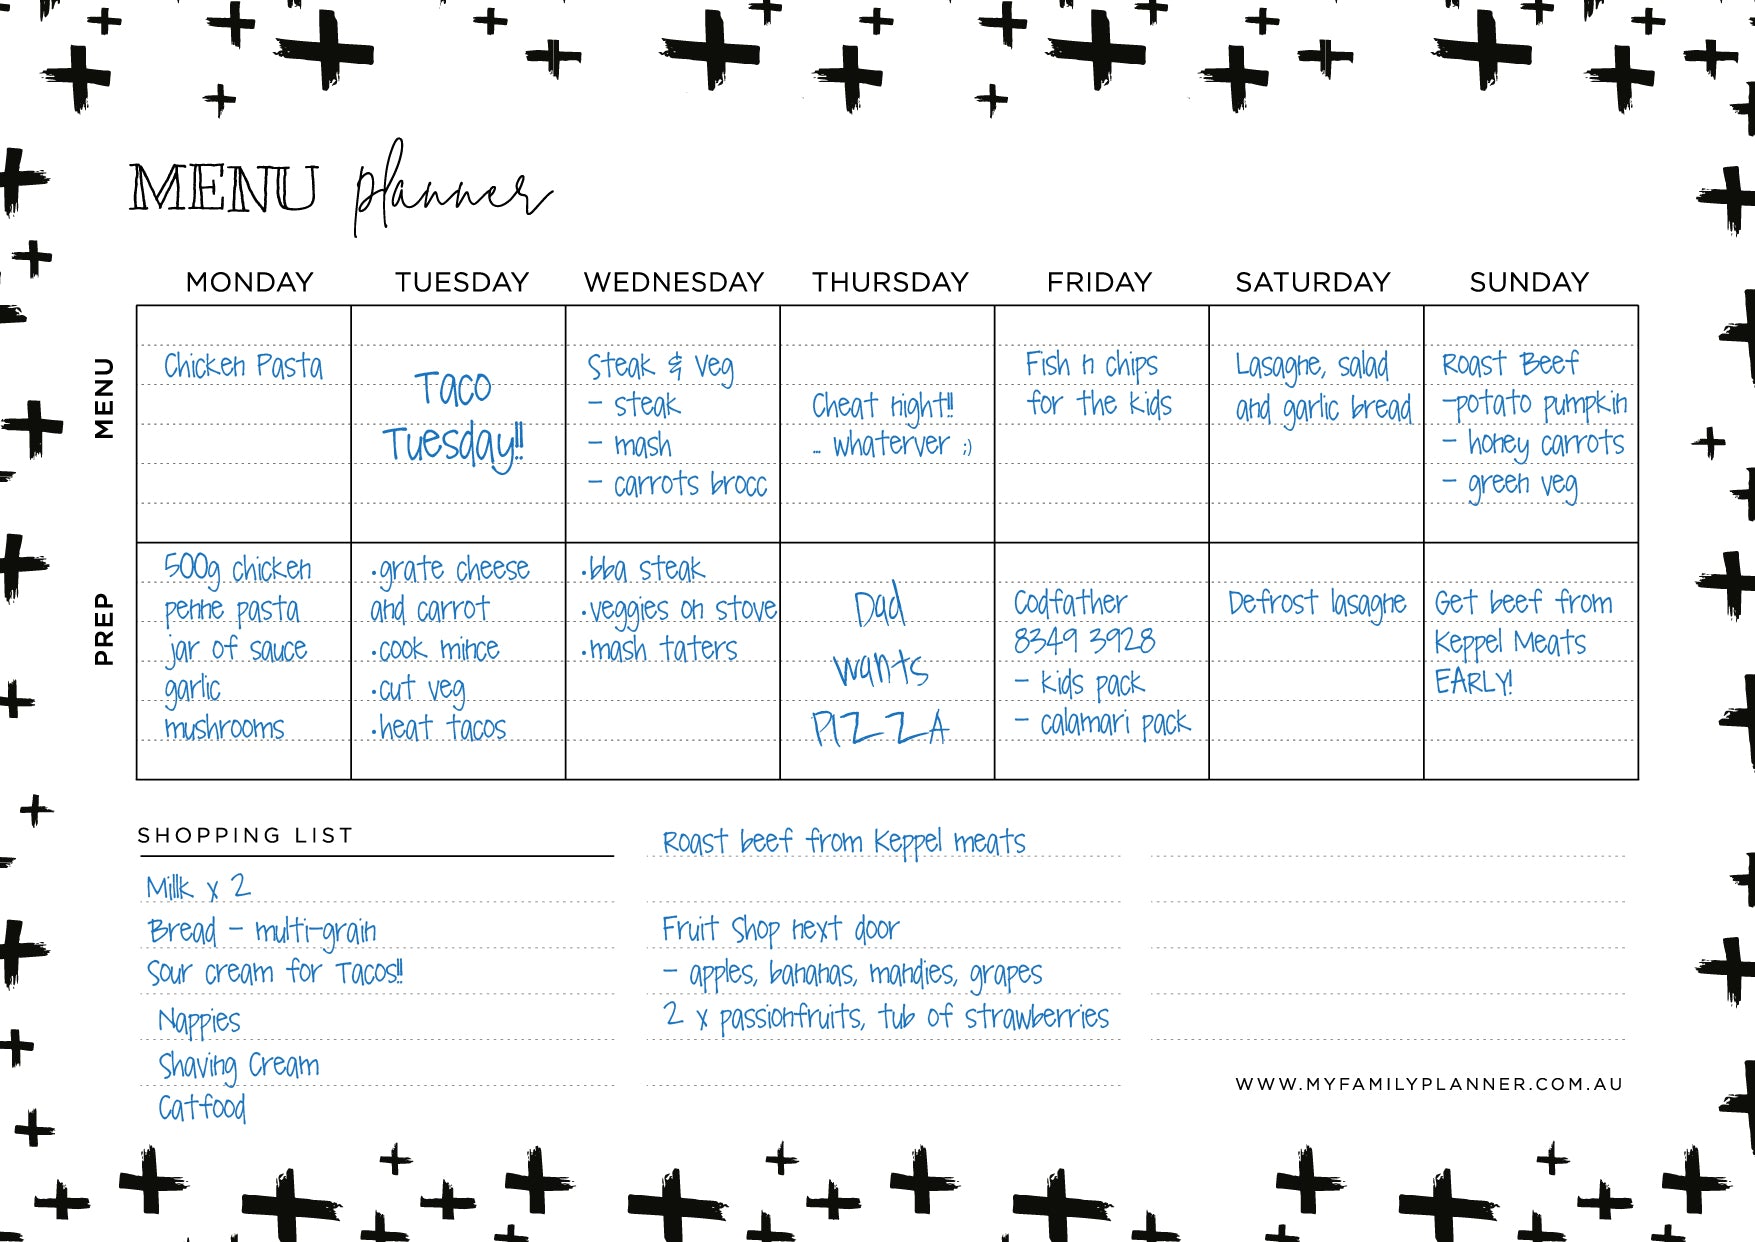 MENU planner
MONDAY TUESDAY WEDNESDAY THURSDAY FRIDAY SATURDAY SUNDAY
MENU
Chicken Pasta
Taco
Tuesday!!
Steak & Veg
- steak
- mash
- carrots brocc
Cheat night!!
... whaterver ;)
Fish n chips
for the kids
Lasagne, salad
and garlic bread
Roast Beef
-potato pumpkin
- honey carrots
- green veg
PREP
500g chicken
penne pasta
jar of sauce
garlic
mushrooms
.grate cheese
and carrot
.cook mince
.cut veg
.heat tacos
.bba steak
.veggies on stove
.mash taters
Dad
wants
PIZZA
Codfather
8349 3928
- kids pack
- calamari pack
Defrost lasagne
Get beef from
Keppel Meats
EARLY!
SHOPPING LIST
Millk x 2
Bread - multi-grain
Sour cream for Tacos!!
Nappies
Shaving Cream
Catfood
Roast beef from Keppel meats
Fruit Shop next door
- apples, bananas, mandies, grapes
2 x passionfruits, tub of strawberries
WWW.MYFAMILYPLANNER.COM.AU